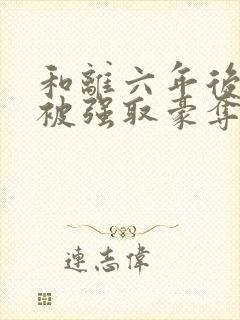 和離六年後
被强取豪奪
連志偉